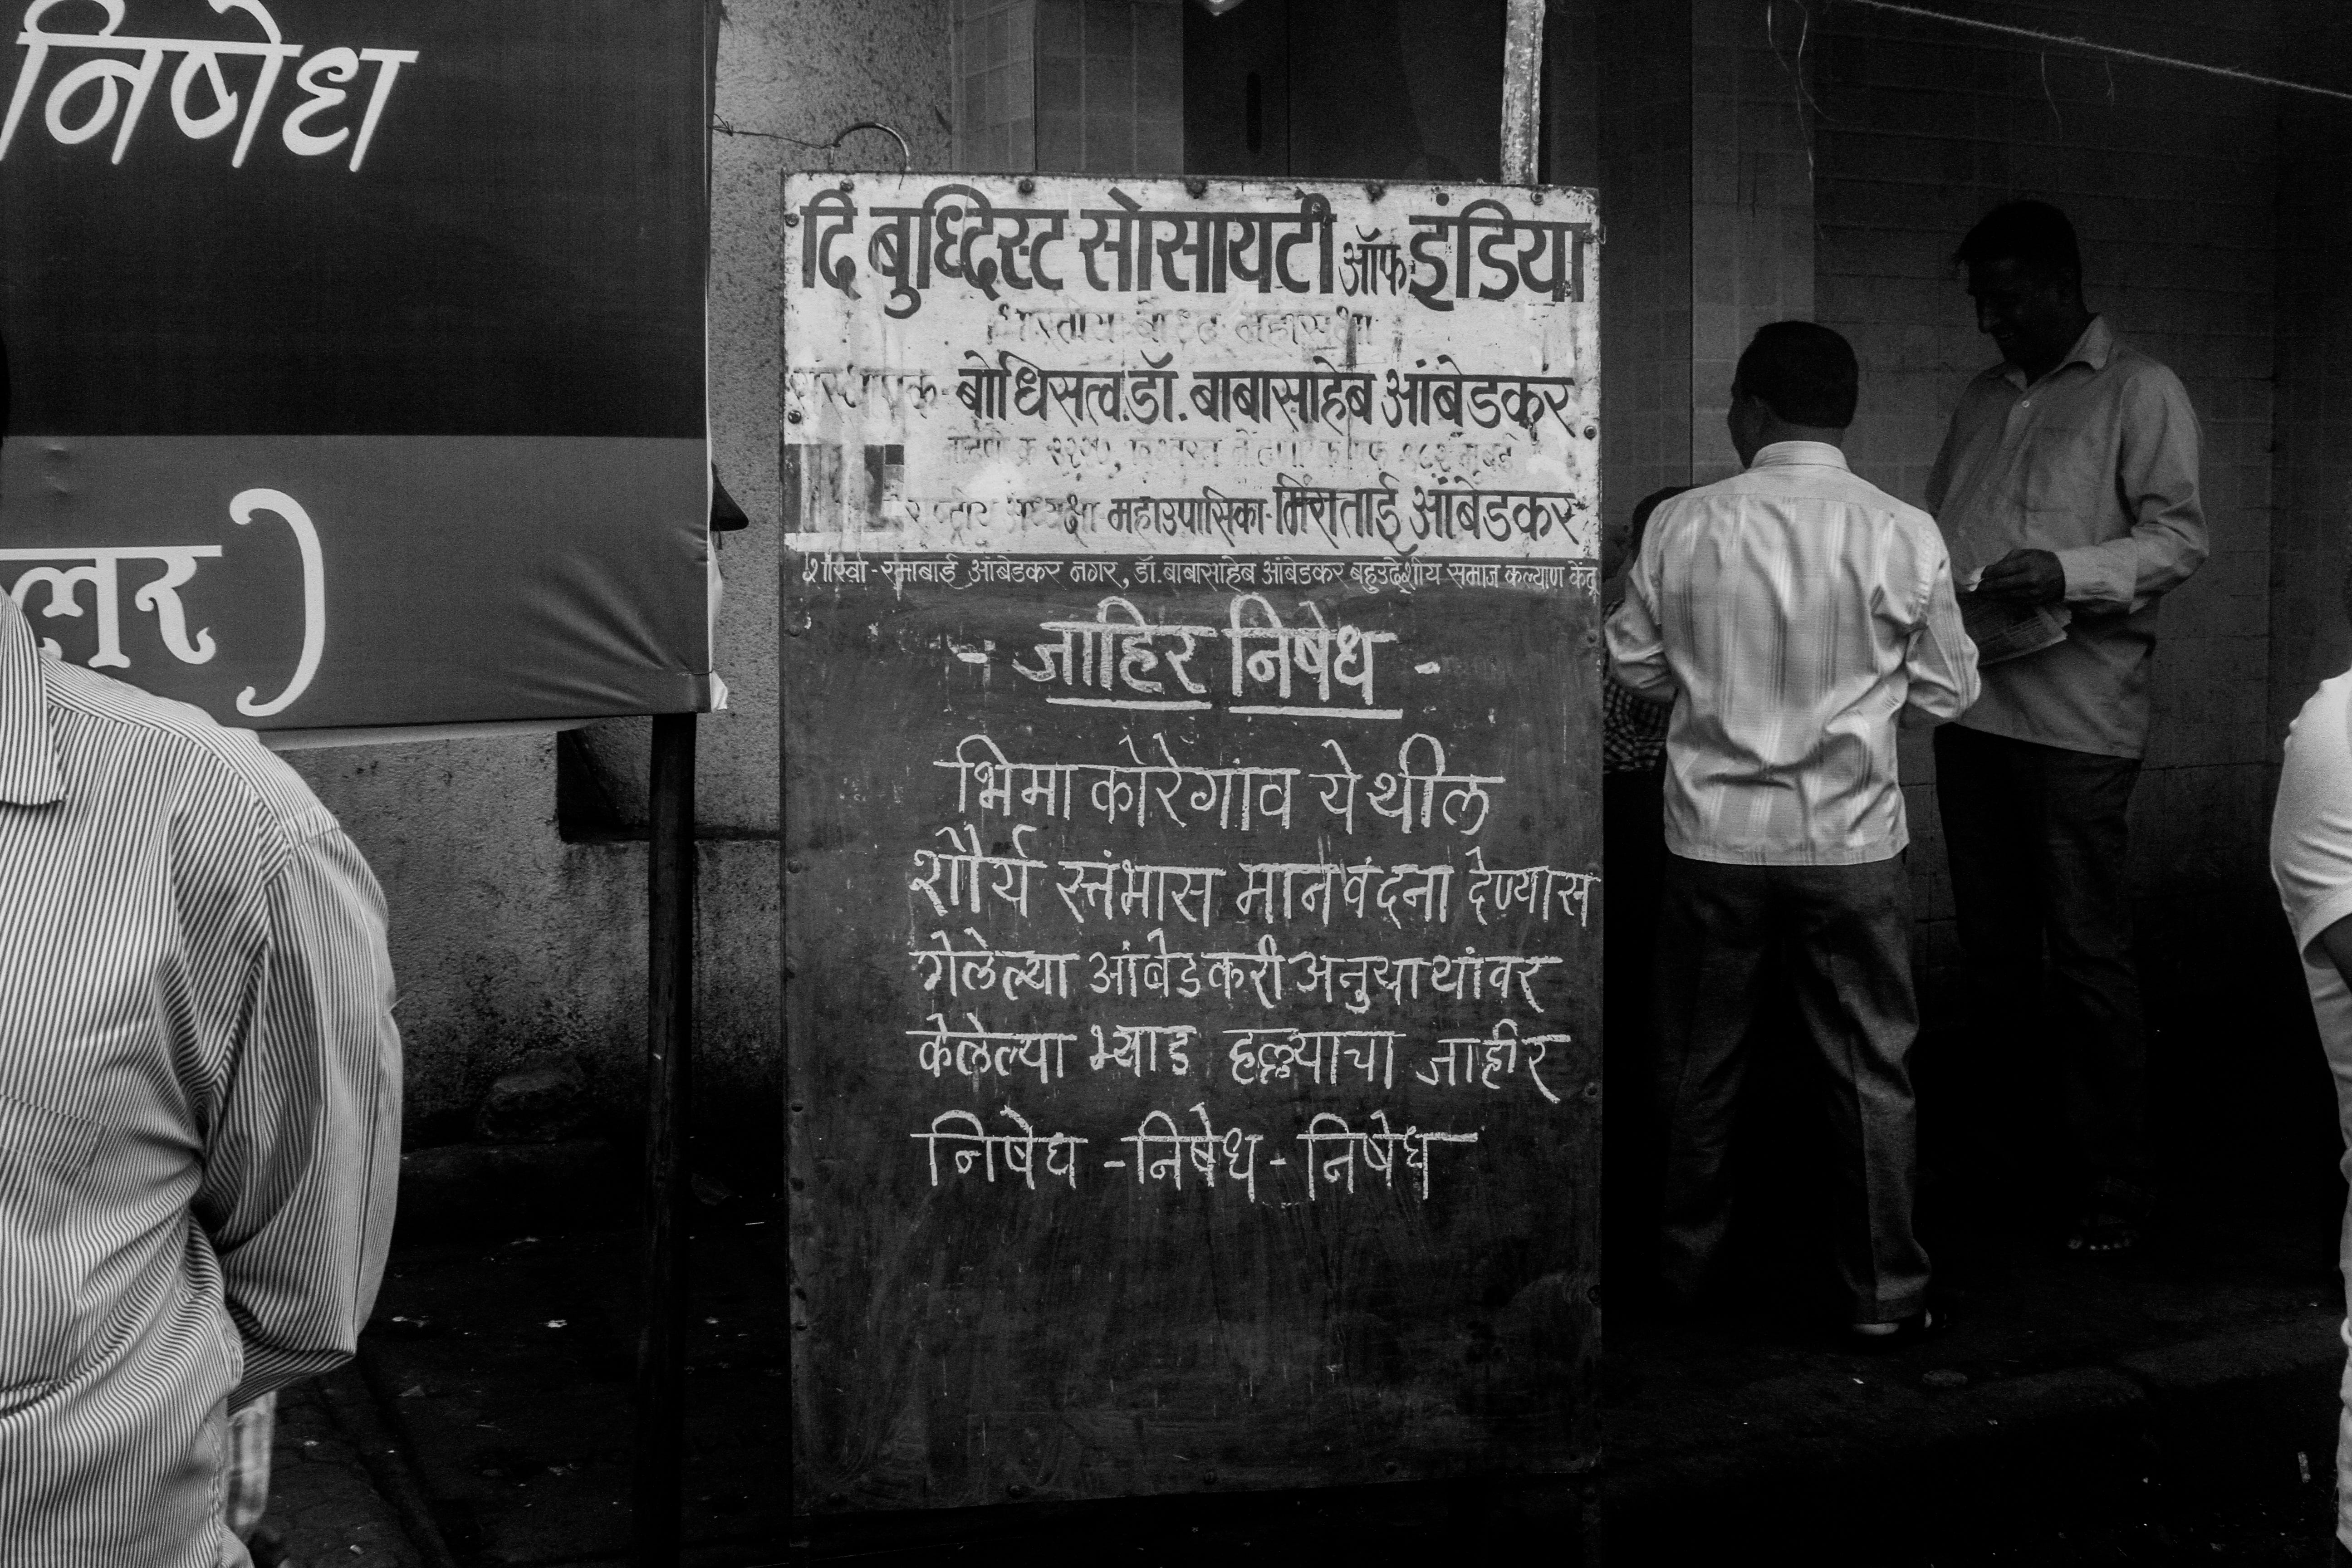 निषेध
लर )
दि बुध्दिस्ट सोसायटी ऑफ इंडिया
भारतीय बौध्द महासभा
संस्थापक- बोधिसत्व डॉ. बाबासाहेब आंबेडकर
राष्ट्रीय अध्यक्षा महाउपासिका- मिराताई आंबेडकर
शाखा - रमाबाई आंबेडकर नगर, डॉ. बाबासाहेब आंबेडकर बहुउद्देशीय समाज कल्याण केंद्र
- जाहिर निषेध -
भिमा कोरेगांव येथील
शौर्य स्तंभास मानवंदना देण्यास
गेलेल्या आंबेडकरी अनुयाथांवर
केलेल्या भ्याड हल्ल्याचा जाहीर
निषेध - निषेध - निषेध